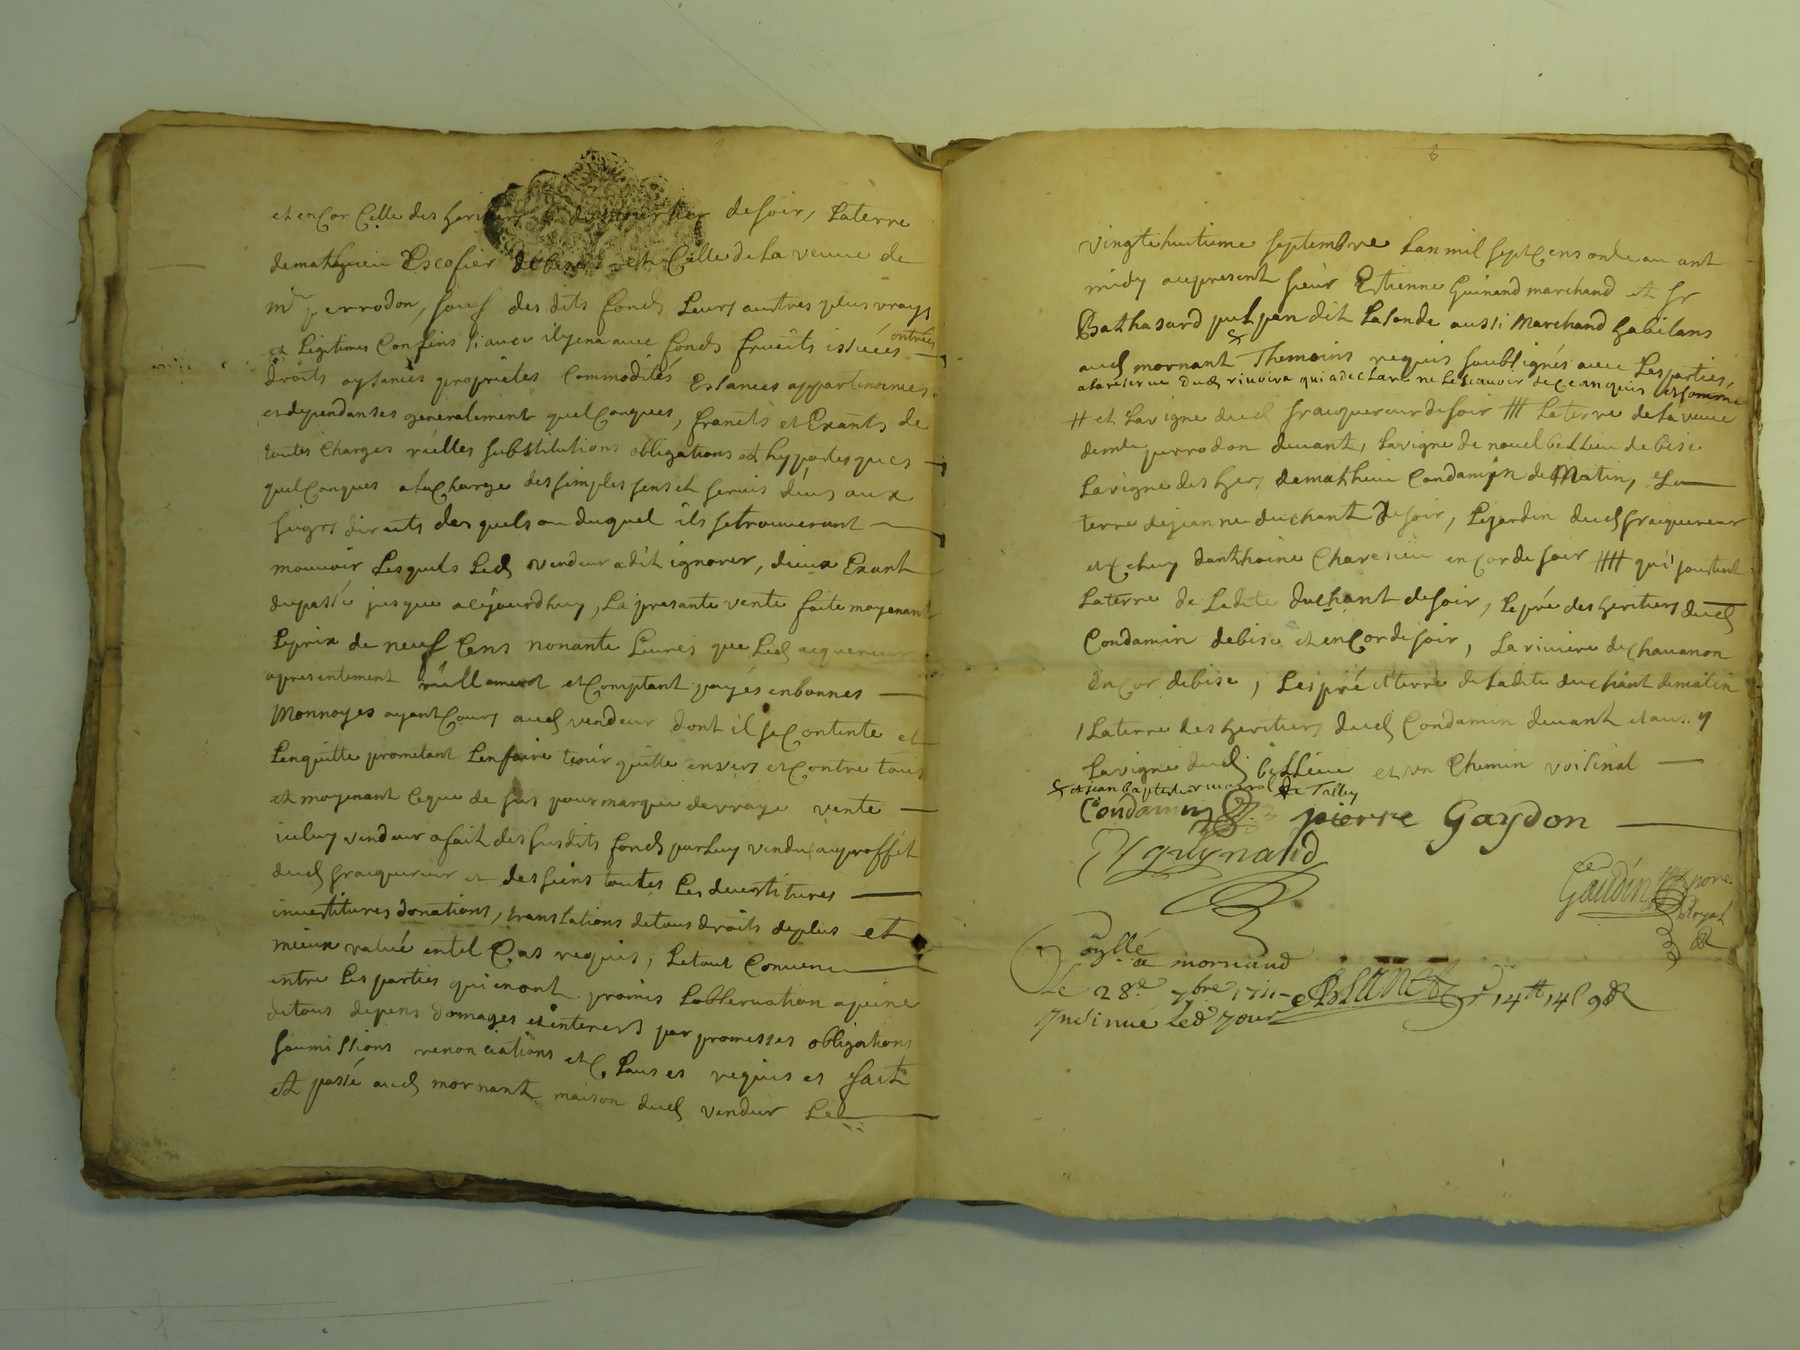 et encor Celle des heritiers de soir, La terre
de mathieu Escofier de bize et Celle de La veuve de
mr perrodon, sauf des dits fonds Leurs autres plus vrays
et Legitimes Confins si aucu ilyena avec fonds fruits issües entrées
droits aysances proprietes Commodités Estances appartenances
et dependanses generalement quelConques, francts et Exants de
toutes Charges réelles substitutions obligations et hyppoteques
quelConques a la Charge des simples sens et servis deus aux
seigrs directs des quels ou duquel ils se trouveront
mouvoir Lesquels Led vendeur a dit ignorer, diceux Exant
du passé jusque a cejourdhuy, La presante vente faite moyenant
Le prix de neuf Cens nonante Livres que Led acquereur
a presentement réellement et Comptant payés en bonnes
Monnoyes ayant Cours aud vendeur dont il se Contente et
Len quitte prometant Len faire tenir quitte envers et Contre tous
et moyenant Ce que de sus pour marque de vraye vente
iceluy vendeur a fait des susdits fonds par Luy vendu au proffit
dud sr acquereur et des siens toutes Les devestitures
investitures donations, translations de tous droits de plus et
mieux value en tel Cas requis, Le tout Convenu
entre Les parties qui en ont promis Lobservation a peine
de tous depens domages et interest par promesses obligations
soumissions renonciations et Clauses requises fait
et passé aud mornant maison dud vendeur Le
6
vingt huitieme septembre Lan mil sept Cens onze avant
midy au present sieur Estienne Guinand marchand et sr
Bathasard pulpan dit La fonde aussi Marchand habitans
aud mornant Themoins requis soubsignés avec Les parties,
a la reserve dud riviere qui a declare ne Le scavoir de ce enquis et somme
# et La vigne dud sr acquereur de soir ## La terre de La veuve
de mr perrodon devant, La vigne de nouel bellieu de bise
La vigne des hers de mathieu Condamin de Matin, La
terre de jeanne duchant de soir, Le jardin dud sr acquereur
et Celuy danthoine Charesieu encor de soir ### qui joustent
La terre de Ladite duchant de soir, Le pré des heritiers dud
Condamin de bise et encor de soir, La riviere de Chavanon
encor de bise, Les pré et terre de Ladite duchant de matin
/ La terre des heritiers dud Condamin devant et aussy
La vigne dud bellieu et un Chemin voisinal
et jean baptiste de Talluy
Condamin pierre Gaydon
guynand
Gaudin
royal
Coyllé a mornand
Le 28e 7bre 1711
Insinué Led jour